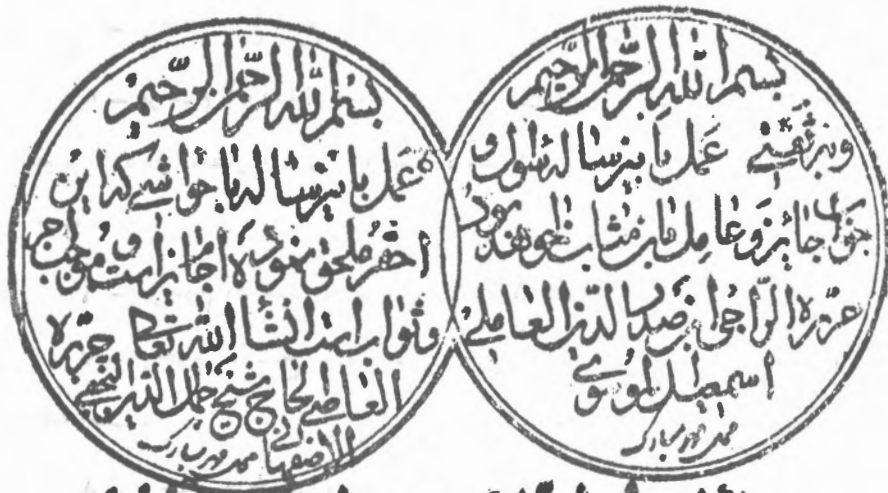 بسم الله الرحمن الرحیم
وبه ثقتی عمل باین رساله سئوال و
جواب جائز و عامل بان مثاب خواهد بود
حرره الراجی ابن صدر الدین العاملی
اسمعیل الموسوی
محل مهر مبارک
بسم الله الرحمن الرحیم
عمل باین رساله با حواشی که این
احقر ملحق نموده‌ام جایز است و موجب اجر
و ثواب است انشاء الله تعالی حرره
العاصی الحاج شیخ جمال الدین النجفی
الاصفهانی محل مهر مبارک